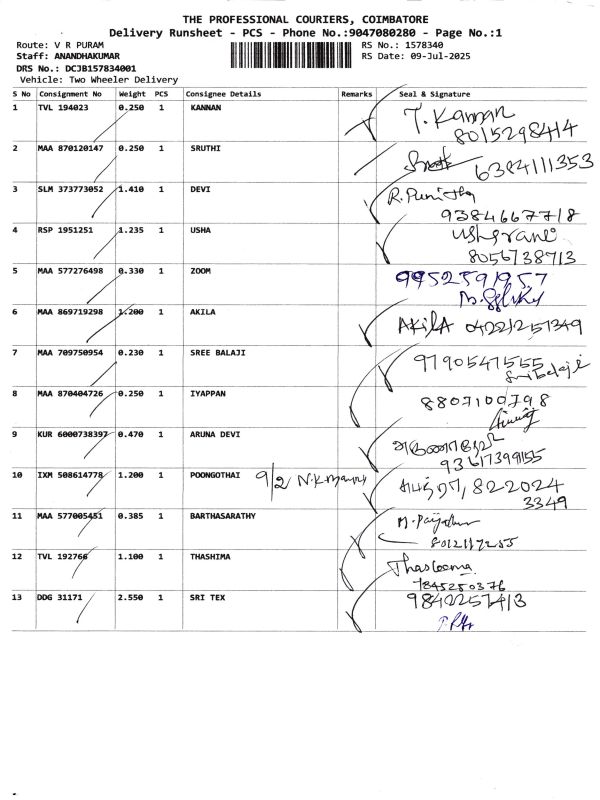 THE PROFESSIONAL COURIERS, COIMBATORE
Delivery Runsheet - PCS - Phone No.:9047080280 - Page No.:1
Route: V R PURAM
RS No.: 1578340
Staff: ANANDHAKUMAR
RS Date: 09-Jul-2025
DRS No.: DCJB157834001
Vehicle: Two Wheeler Delivery
S No Consignment No Weight PCS Consignee Details Remarks Seal & Signature
1 TVL 194023 0.250 1 KANNAN T. Kannan
8015298414
2 MAA 870120147 0.250 1 SRUTHI 6384111353
3 SLM 373773052 1.410 1 DEVI R. Punitha
9384667718
4 RSP 1951251 1.235 1 USHA Usharani
8056738713
5 MAA 577276498 0.330 1 ZOOM 9952591957
6 MAA 869719298 1.200 1 AKILA AKilA 04221257349
7 MAA 709750954 0.230 1 SREE BALAJI 9790547555
Sribalaji
8 MAA 870404726 0.250 1 IYAPPAN 8807100798
9 KUR 6000738397 0.470 1 ARUNA DEVI
9361739955
10 IXM 508614778 1.200 1 POONGOTHAI 9/2 822024
3349
11 MAA 577005451 0.385 1 BARTHASARATHY
8012117255
12 TVL 192766 1.100 1 THASHIMA Thasleema
7845250376
13 DDG 31171 2.550 1 SRI TEX 9842257413